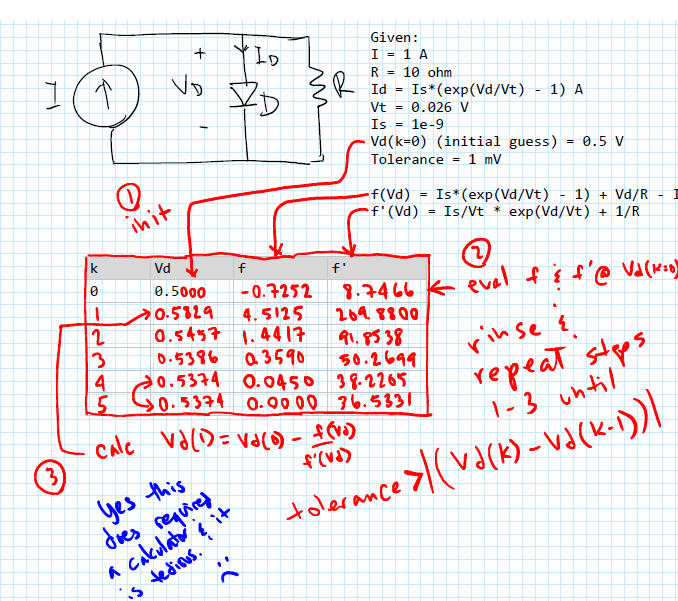 Given:
I = 1 A
R = 10 ohm
Id = Is*(exp(Vd/Vt) - 1) A
Vt = 0.026 V
Is = 1e-9
Vd(k=0) (initial guess) = 0.5 V
Tolerance = 1 mV
I
+
VD
-
ID
D
R
f(Vd) = Is*(exp(Vd/Vt) - 1) + Vd/R - I
f'(Vd) = Is/Vt * exp(Vd/Vt) + 1/R
1
init
k Vd f f'
0 0.5000 -0.7252 8.7466
1 0.5829 4.5125 209.8800
2 0.5457 1.4417 91.8538
3 0.5386 0.3590 50.2699
4 0.5374 0.0450 38.2265
5 0.5374 0.0000 36.5331
2
eval f & f' @ Vd(k=0)
rinse &
repeat steps
1-3 until
tolerance > |(Vd(k) - Vd(k-1))|
3
calc Vd(1) = Vd(0) - f(Vd)
f'(Vd)
Yes this
does required
a calculator & it
is tedious. :(